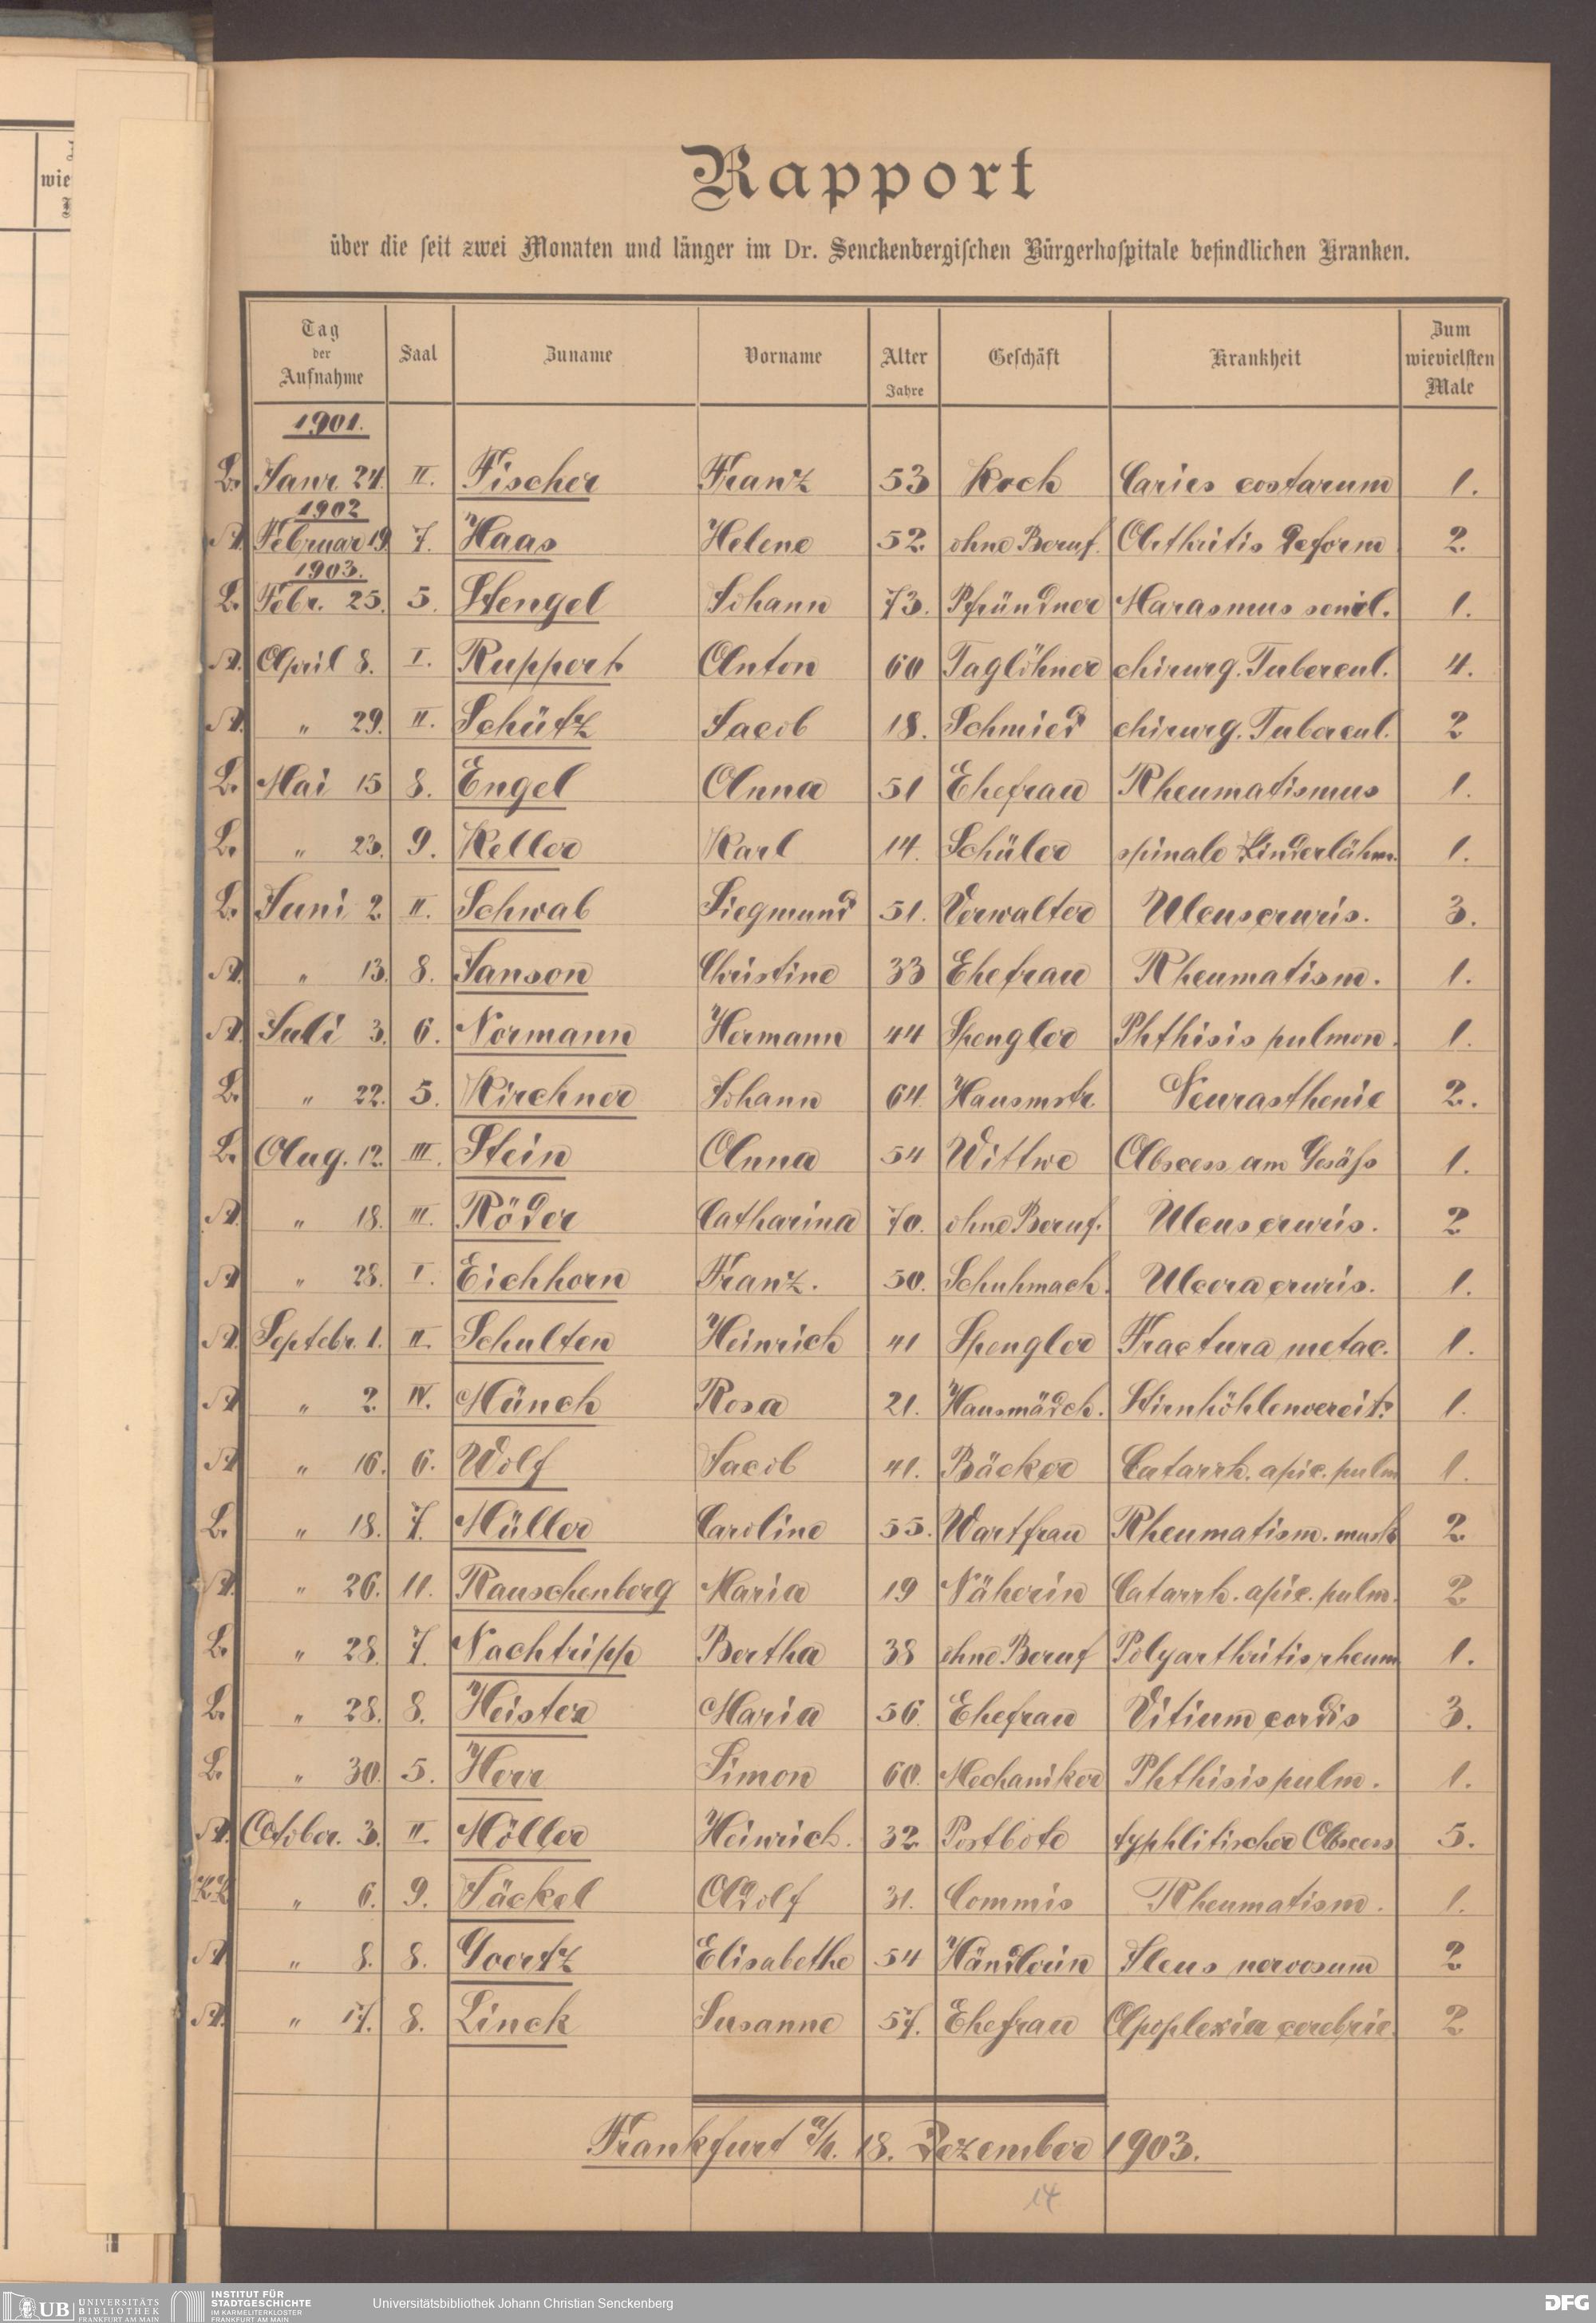 wie
Rapport
über die seit zwei Monaten und länger im Dr. Senckenbergischen Bürgerhospitale befindlichen Kranken.
Tag der Aufnahme Saal Zuname Vorname Alter Jahre Geschäft Krankheit Zum wievielsten Male
1901.
L. Janr. 24. II. Fischer Franz 53 Koch Caries costarum 1.
1902
A. Februar 19. 7. Haas Helene 52. ohne Beruf. Arthritis deform. 2.
1903.
L. Febr. 25. 5. Stengel Johann 73. Pfründner Marasmus senil. 1.
A. April 8. I. Ruppert Anton 60 Taglöhner chirurg. Tubercul. 4.
A. " 29. II. Schütz Jacob 18. Schmied chirurg. Tubercul. 2
L. Mai 15 8. Engel Anna 51 Ehefrau Rheumatismus 1.
L. " 23. 9. Keller Karl 14. Schüler spinale Kinderlähm. 1.
L. Juni 2. II. Schwab Siegmund 51. Verwalter Ulcus cruris. 3.
A. " 13. 8. Janson Christine 33 Ehefrau Rheumatism. 1.
A. Juli 3. 6. Normann Hermann 44 Spengler Phthisis pulmon. 1.
L. " 22. 5. Kirchner Johann 64. Hausmstr. Neurasthenie 2.
L. Aug. 12. III. Stein Anna 54 Wittwe Abscess am Gesäß 1.
A. " 18. III. Röder Catharina 70. ohne Beruf. Ulcus cruris. 2
A " 28. I. Eichhorn Franz. 50. Schuhmach. Ulcera cruris. 1.
A. Septebr. 1. II. Schulten Heinrich 41 Spengler Fractura metac. 1.
A " 2. IV. Münch Rosa 21. Hausmädch. Stirnhöhlenvereit. 1.
A " 16. 6. Wolf Jacob 41. Bäcker Catarrh. apic. pulm 1.
L. " 18. 7. Müller Caroline 55. Wartfrau Rheumatism. musk 2.
A. " 26. 11. Rauschenberg Maria 19 Näherin Catarrh. apic. pulm. 2
L. " 28. 7. Nachtripp Bertha 38 ohne Beruf Polyarthritis rheum 1.
L. " 28. 8. Heister Maria 56 Ehefrau Vitium cordis 3.
L. " 30. 5. Herr Simon 60. Mechaniker Phthisis pulm. 1.
A. October. 3. II. Möller Heinrich. 32. Postbote typhlitischer Abscess 5.
" 6. 9. Jäckel Adolf 31. Commis Rheumatism. 1.
A. " 8. 8. Goertz Elisabethe 54 Händlerin Ileus nervosum 2
A. " 17. 8. Linck Susanne 57. Ehefrau Apoplexia cerebrie. 2
Frankfurt a/M. 18. Dezember 1903.
14
UB UNIVERSITÄTS BIBLIOTHEK FRANKFURT AM MAIN
INSTITUT FÜR STADTGESCHICHTE IM KARMELITERKLOSTER FRANKFURT AM MAIN
Universitätsbibliothek Johann Christian Senckenberg
DFG